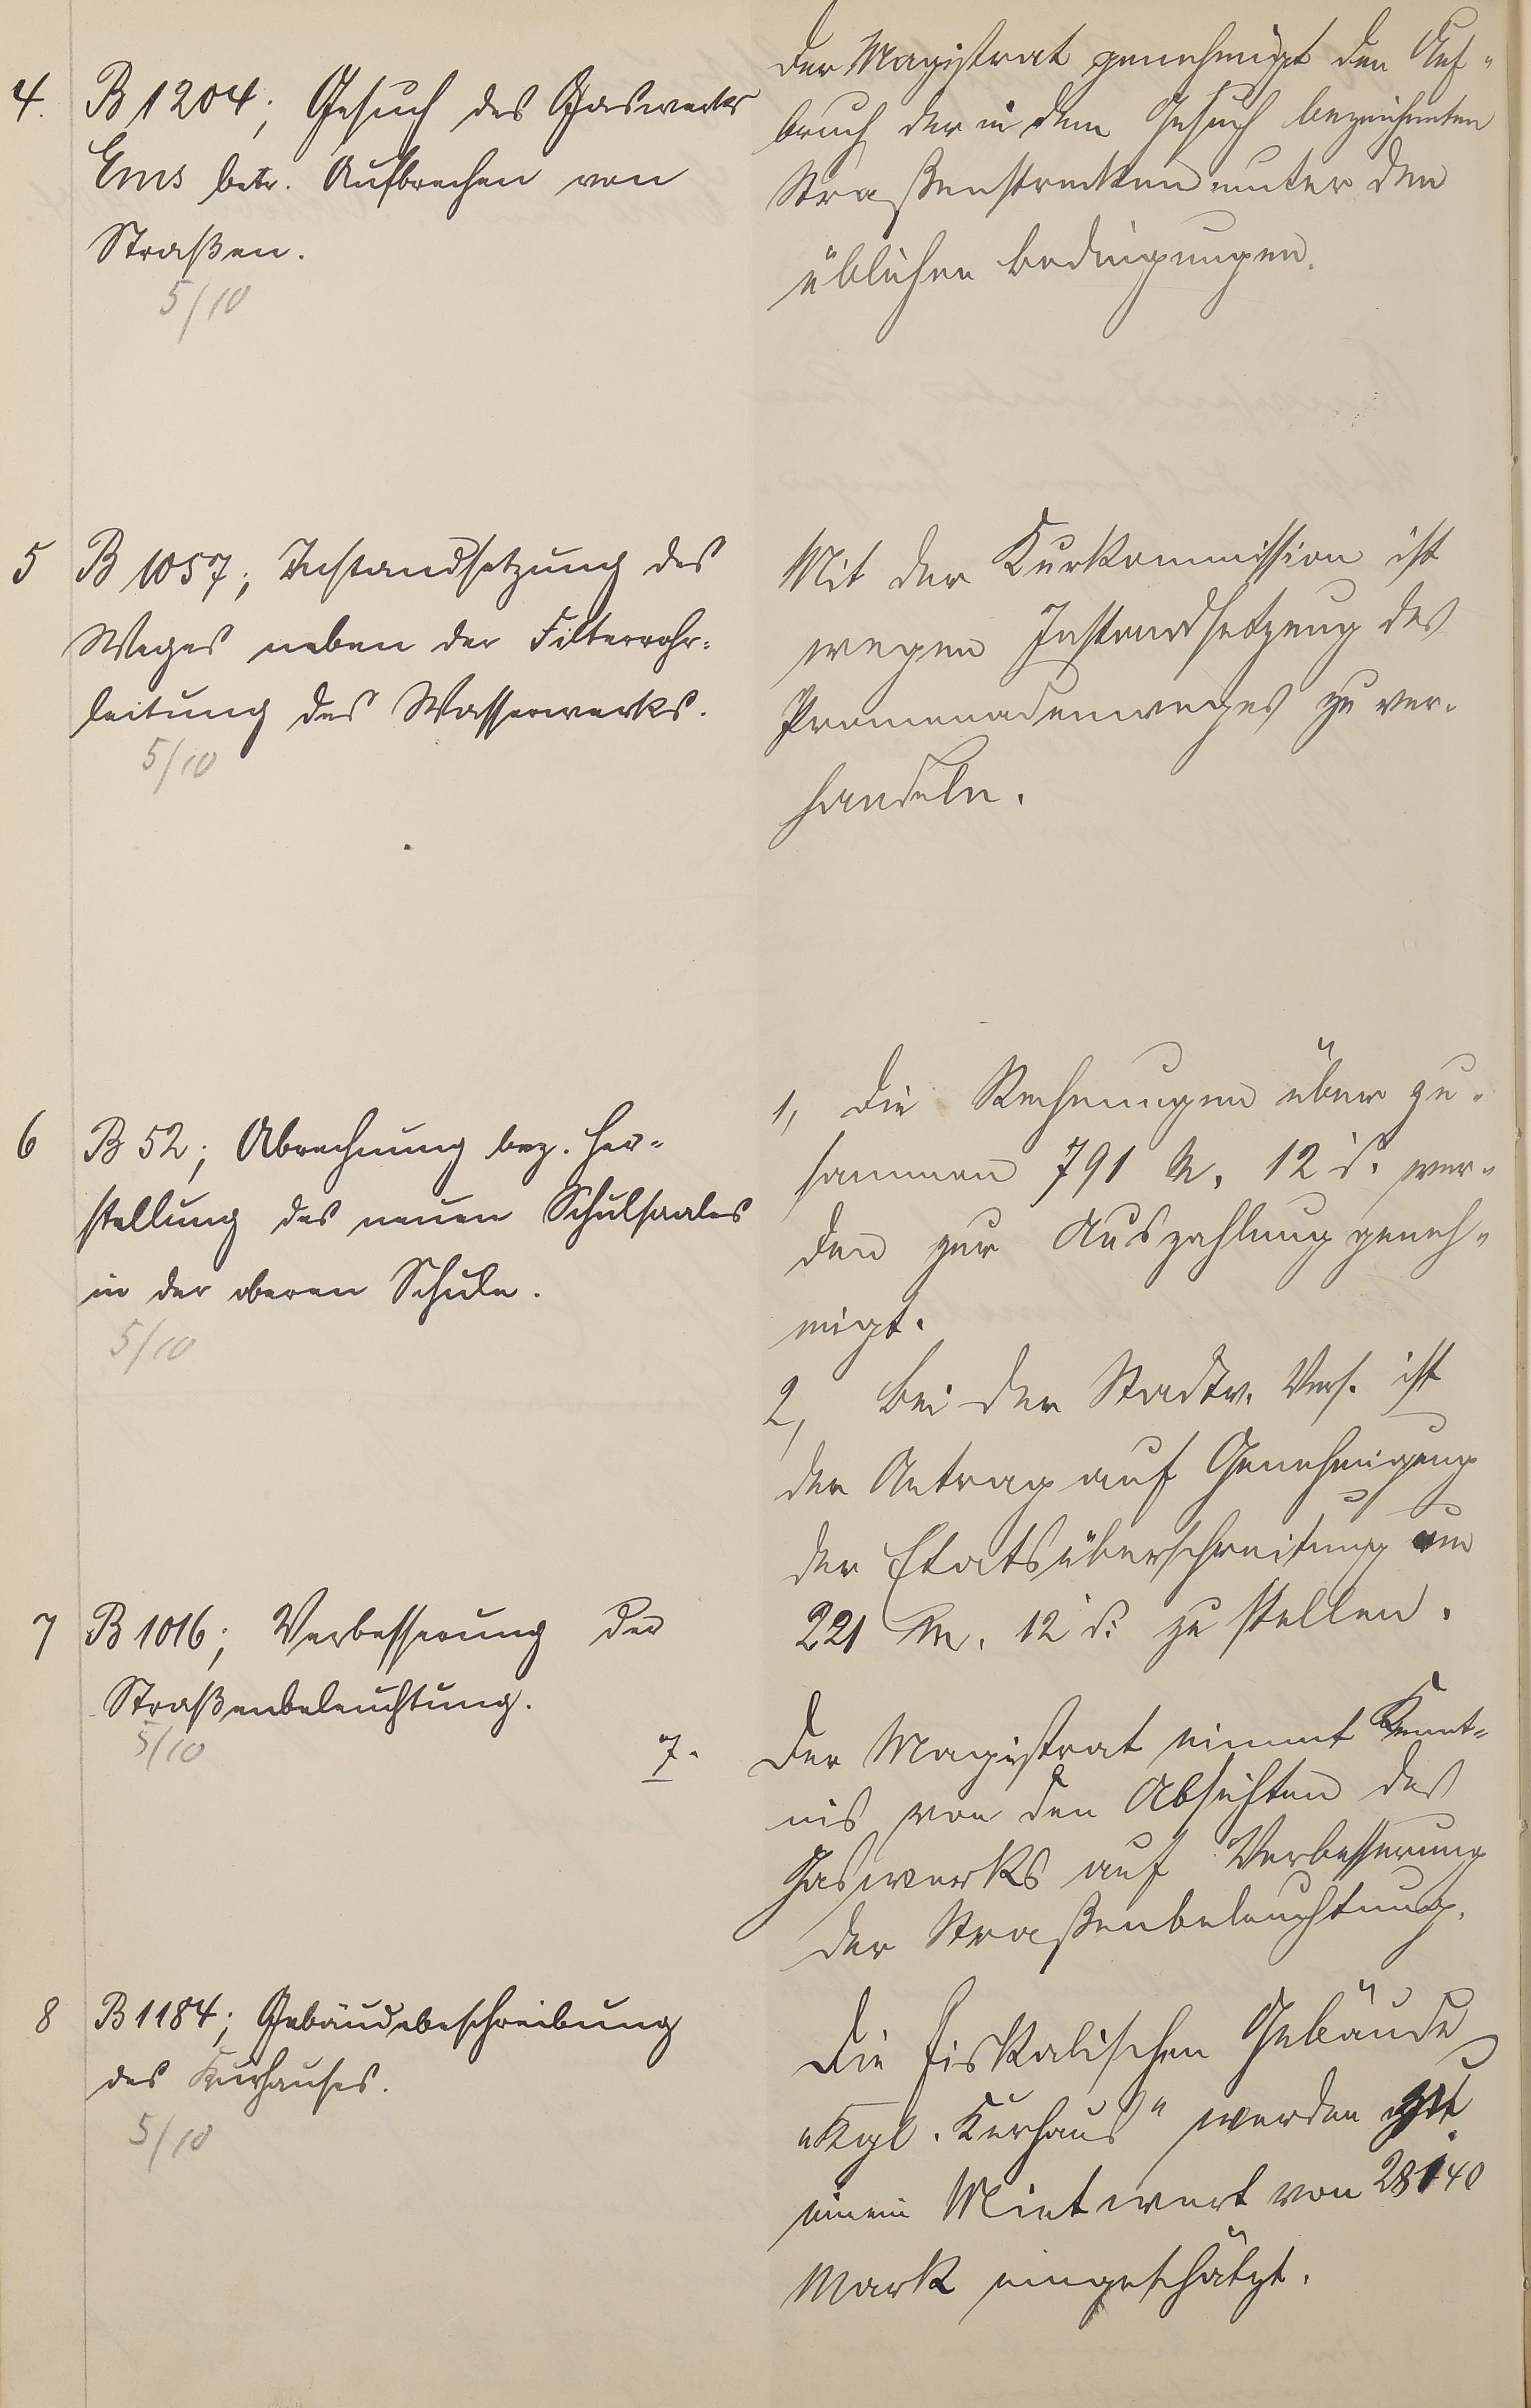 4. B 1204; Gesuch des Gaswerks
Ems betr. Aufbrechen von
Straßen.
5/10
Der Magistrat genehmigt den Auf-
bruch der in dem Gesuch bezeichneten
Straßenstrecken unter den
üblichen Bedingungen.
5 B 1057; Instandsetzung des
Weges neben der Filterrohr-
leitung des Wasserwerks.
5/10
Mit der Kurkommission ist
wegen Instandsetzung des
Promenadenweges zu ver-
handeln.
6 B 52; Abrechnung bez. Her-
stellung des neuen Schulsaales
in der oberen Schule.
5/10
1, Die Rechnungen über zu-
sammen 791 M. 12 d. wer-
den zur Auszahlung geneh-
migt.
2, Bei der Stadtv. Vers. ist
der Antrag auf Genehmigung
der Etatsüberschreitung um
221 M. 12 d. zu stellen.
7 B 1016; Verbesserung der
Straßenbeleuchtung.
5/10
7. Der Magistrat nimmt Kennt-
nis von den Absichten des
Gaswerks auf Verbesserung
der Straßenbeleuchtung.
8 B 1184; Gebäudebeschreibung
des Kurhauses.
5/10
Die fiskalischen Gebäude
„Kgl. Kurhaus" werden
einem Mietwert von 28140
Mark eingeschätzt.